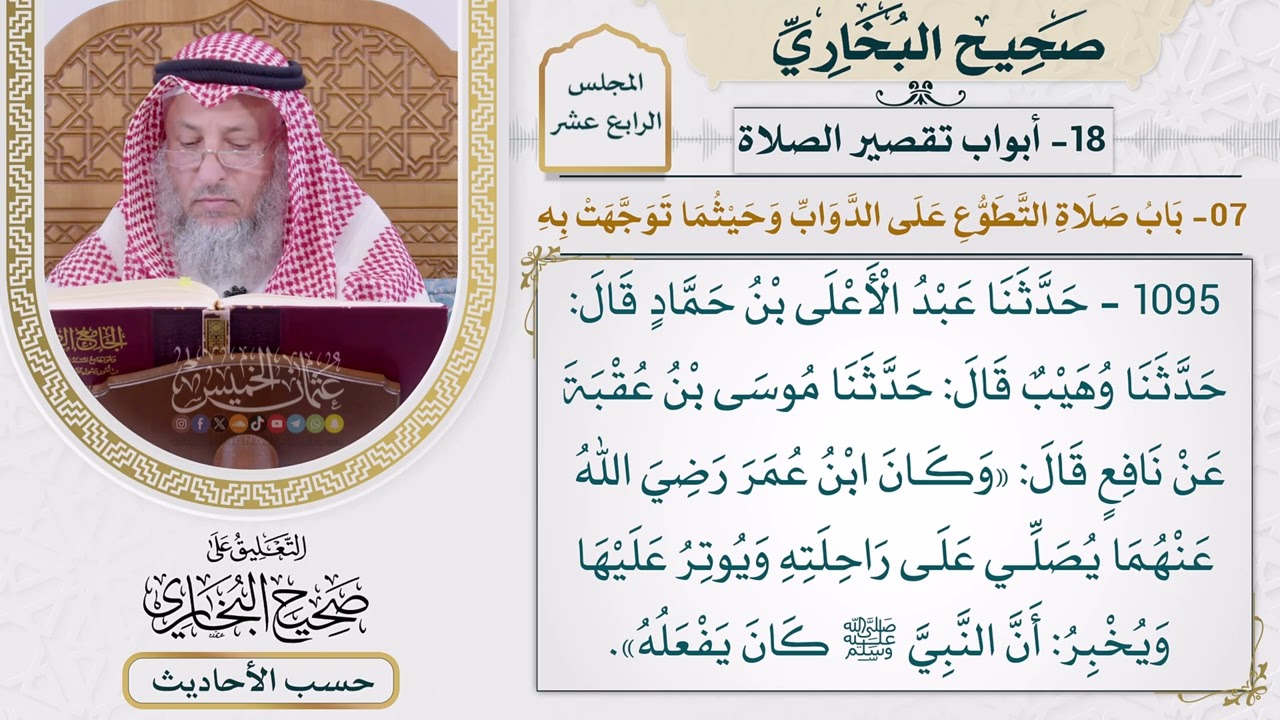 صَحِيحُ البُخَارِيِّ
المجلس
الرابع عشر
18- أبواب تقصير الصلاة
07- بَابُ صَلَاةِ التَّطَوُّعِ عَلَى الدَّوَابِّ وَحَيْثُمَا تَوَجَّهَتْ بِهِ
1095 - حَدَّثَنَا عَبْدُ الْأَعْلَى بْنُ حَمَّادٍ قَالَ:
حَدَّثَنَا وُهَيْبٌ قَالَ: حَدَّثَنَا مُوسَى بْنُ عُقْبَةَ
عَنْ نَافِعٍ قَالَ: «وَكَانَ ابْنُ عُمَرَ رَضِيَ اللهُ
عَنْهُمَا يُصَلِّي عَلَى رَاحِلَتِهِ وَيُوتِرُ عَلَيْهَا
وَيُخْبِرُ: أَنَّ النَّبِيَّ ﷺ كَانَ يَفْعَلُهُ».
عثمان الخميس
التَّعْلِيقُ عَلَى
صَحِيحِ البُخَارِي
حسب الأحاديث